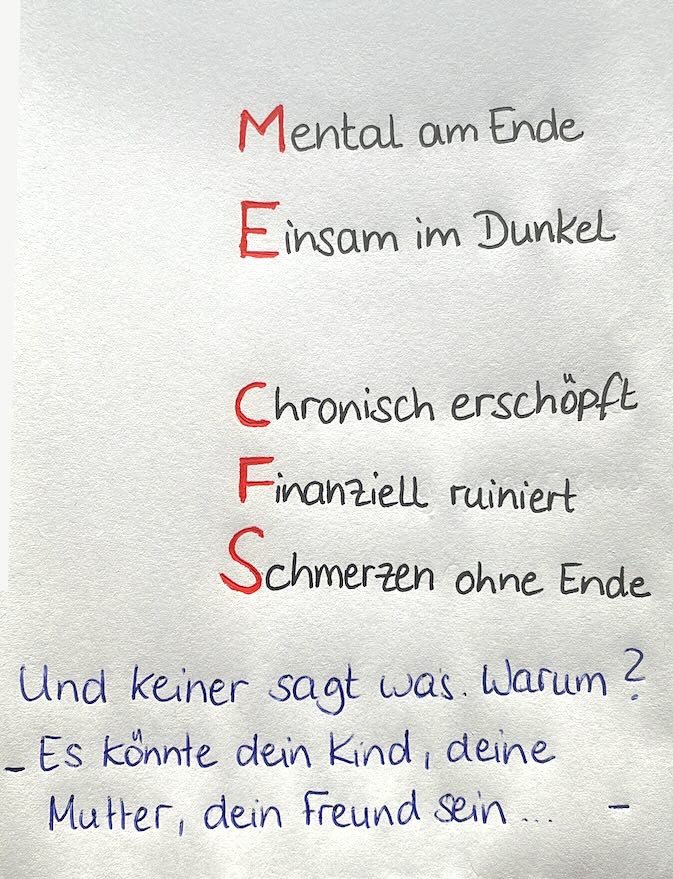 Mental am Ende
Einsam im Dunkel
Chronisch erschöpft
Finanziell ruiniert
Schmerzen ohne Ende
Und keiner sagt was. Warum?
- Es könnte dein Kind, deine
Mutter, dein Freund sein... -